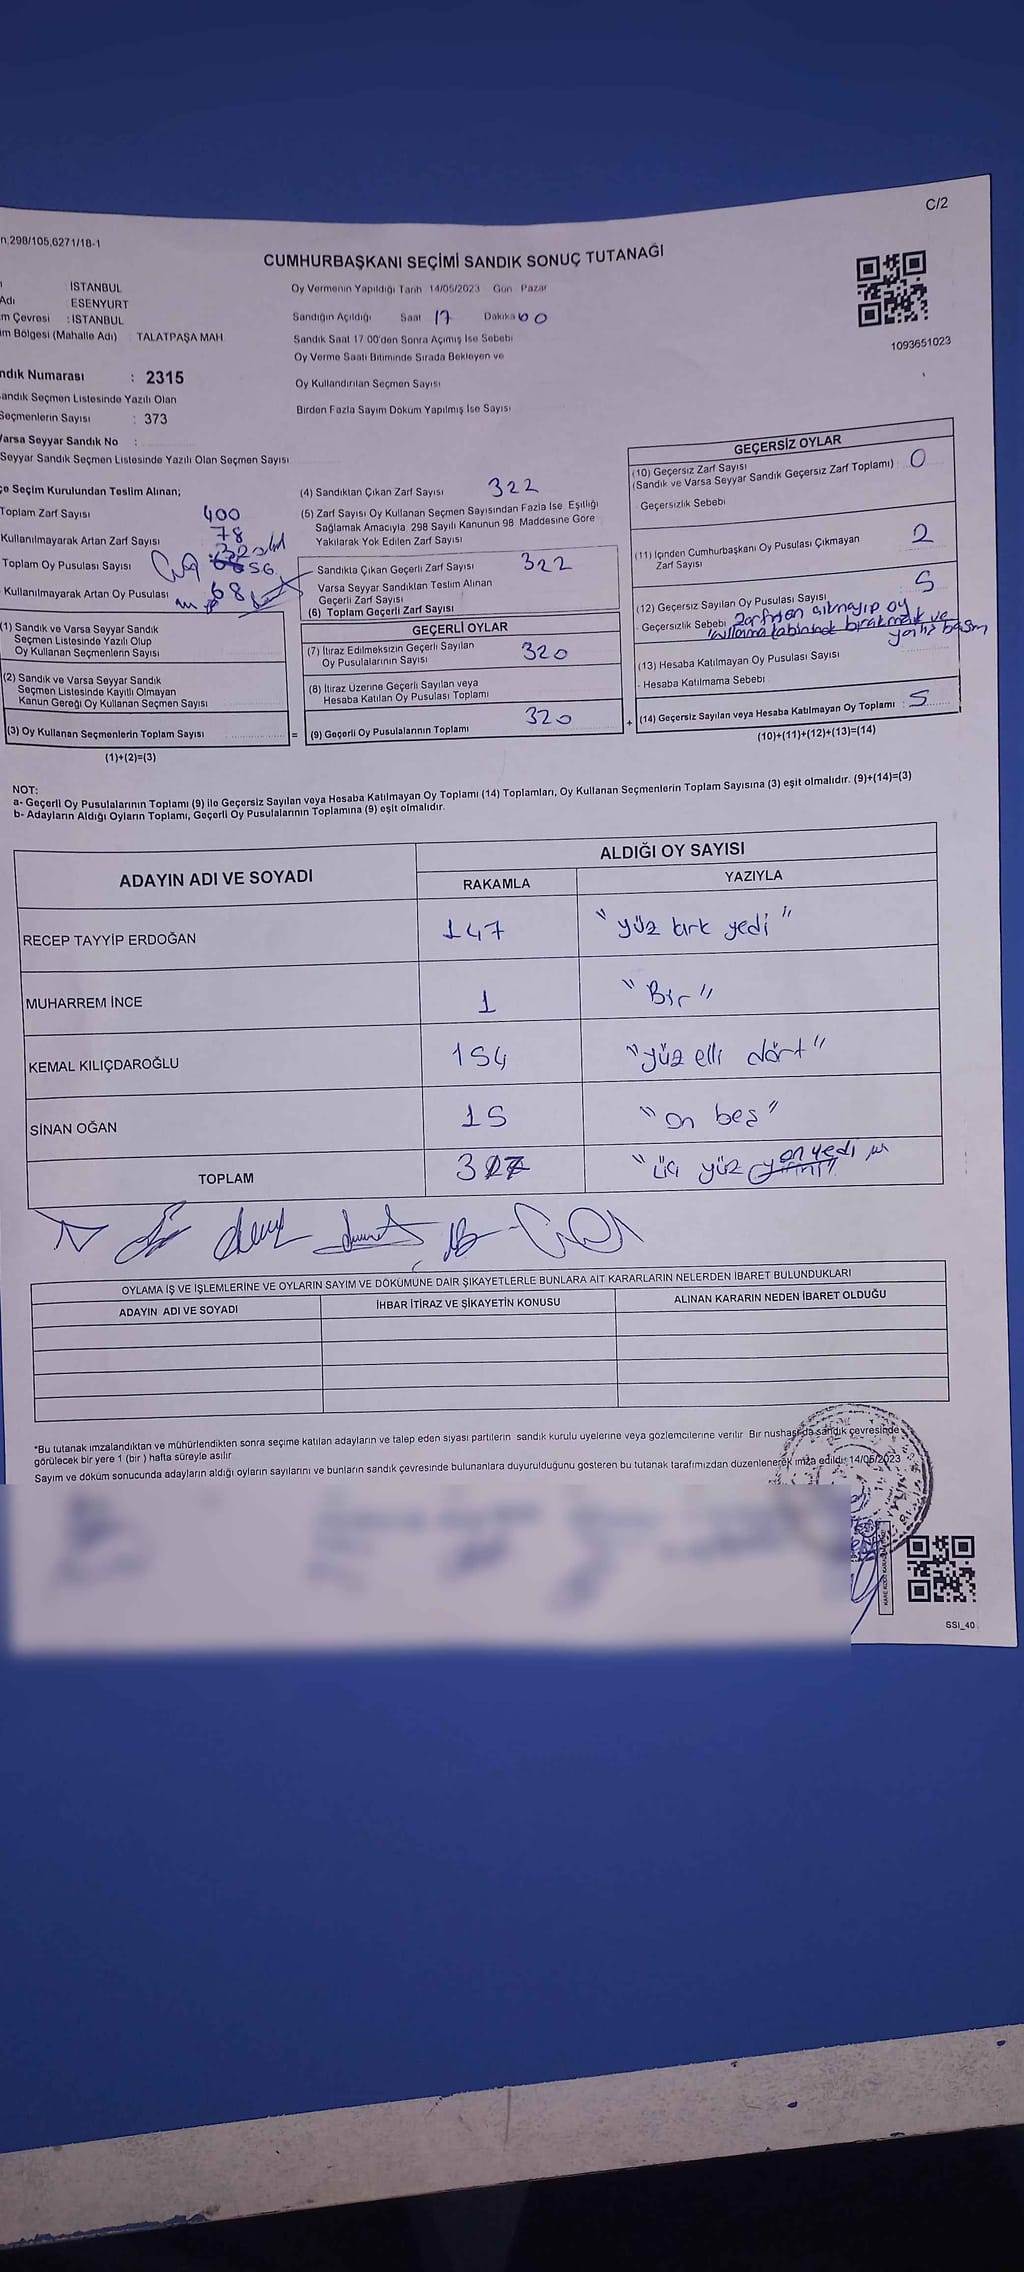 C/2
n.298/105,6271/18-1
CUMHURBAŞKANI SEÇİMİ SANDIK SONUÇ TUTANAĞI
1093651023
: İSTANBUL
Adı : ESENYURT
m Çevresi : İSTANBUL
im Bölgesi (Mahalle Adı) : TALATPAŞA MAH
ndık Numarası : 2315
andık Seçmen Listesinde Yazılı Olan
Seçmenlerin Sayısı : 373
Varsa Seyyar Sandık No :
Seyyar Sandık Seçmen Listesinde Yazılı Olan Seçmen Sayısı
Oy Vermenin Yapıldığı Tarih 14/05/2023 Gün Pazar
Sandığın Açıldığı Saat 17 Dakika 00
Sandık Saat 17 00'den Sonra Açımış İse Sebebi
Oy Verme Saati Bitiminde Sırada Bekleyen ve
Oy Kullandırılan Seçmen Sayısı
Birden Fazla Sayım Döküm Yapılmış İse Sayısı
çe Seçim Kurulundan Teslim Alınan;
Toplam Zarf Sayısı 400
Kullanılmayarak Artan Zarf Sayısı 78
Toplam Oy Pusulası Sayısı
Kullanılmayarak Artan Oy Pusulası 68
(1) Sandık ve Varsa Seyyar Sandık
Seçmen Listesinde Yazılı Olup
Oy Kullanan Seçmenlerin Sayısı
(2) Sandık ve Varsa Seyyar Sandık
Seçmen Listesinde Kayıtlı Olmayan
Kanun Gereği Oy Kullanan Seçmen Sayısı
(3) Oy Kullanan Seçmenlerin Toplam Sayısı
(1)+(2)=(3)
(4) Sandıktan Çıkan Zarf Sayısı 322
(5) Zarf Sayısı Oy Kullanan Seçmen Sayısından Fazla İse Eşitliği
Sağlamak Amacıyla 298 Sayılı Kanunun 98 Maddesine Göre
Yakılarak Yok Edilen Zarf Sayısı
Sandıkta Çıkan Geçerli Zarf Sayısı 322
Varsa Seyyar Sandıktan Teslim Alınan
Geçerli Zarf Sayısı
(6) Toplam Geçerli Zarf Sayısı
GEÇERLİ OYLAR
(7) İtiraz Edilmeksizin Geçerli Sayılan
Oy Pusulalarının Sayısı 320
(8) İtiraz Üzerine Geçerli Sayılan veya
Hesaba Katılan Oy Pusulası Toplamı
= (9) Geçerli Oy Pusulalarının Toplamı 320 +
GEÇERSİZ OYLAR
(10) Geçersiz Zarf Sayısı
(Sandık ve Varsa Seyyar Sandık Geçersiz Zarf Toplamı) 0
Geçersizlik Sebebi
(11) İçinden Cumhurbaşkanı Oy Pusulası Çıkmayan
Zarf Sayısı 2
(12) Geçersiz Sayılan Oy Pusulası Sayısı 5
- Geçersizlik Sebebi Zarftan çıkmayıp oy
kullanma kabininde bırakmak ve
yanlış basım
(13) Hesaba Katılmayan Oy Pusulası Sayısı
- Hesaba Katılmama Sebebi
(14) Geçersiz Sayılan veya Hesaba Katılmayan Oy Toplamı 5
(10)+(11)+(12)+(13)=(14)
NOT:
a- Geçerli Oy Pusulalarının Toplamı (9) ile Geçersiz Sayılan veya Hesaba Katılmayan Oy Toplamı (14) Toplamları, Oy Kullanan Seçmenlerin Toplam Sayısına (3) eşit olmalıdır. (9)+(14)=(3)
b- Adayların Aldığı Oyların Toplamı, Geçerli Oy Pusulalarının Toplamına (9) eşit olmalıdır.
ADAYIN ADI VE SOYADI ALDIĞI OY SAYISI
RAKAMLA YAZIYLA
RECEP TAYYİP ERDOĞAN 147 "yüz kırk yedi"
MUHARREM İNCE 1 "Bir"
KEMAL KILIÇDAROĞLU 154 "yüz elli dört"
SİNAN OĞAN 15 "on beş"
TOPLAM 317 "üç yüz on yedi
OYLAMA İŞ VE İŞLEMLERİNE VE OYLARIN SAYIM VE DÖKÜMÜNE DAİR ŞİKAYETLERLE BUNLARA AİT KARARLARIN NELERDEN İBARET BULUNDUKLARI
ADAYIN ADI VE SOYADI İHBAR İTİRAZ VE ŞİKAYETİN KONUSU ALINAN KARARIN NEDEN İBARET OLDUĞU
*Bu tutanak imzalandıktan ve mühürlendikten sonra seçime katılan adayların ve talep eden siyasi partilerin sandık kurulu üyelerine veya gözlemcilerine verilir Bir nushası da sandık çevresinde
görülecek bir yere 1 (bir ) hafta süreyle asılır
Sayım ve döküm sonucunda adayların aldığı oyların sayılarını ve bunların sandık çevresinde bulunanlara duyurulduğunu gösteren bu tutanak tarafımızdan düzenlenerek imza edildi 14/05/2023
SSI_40